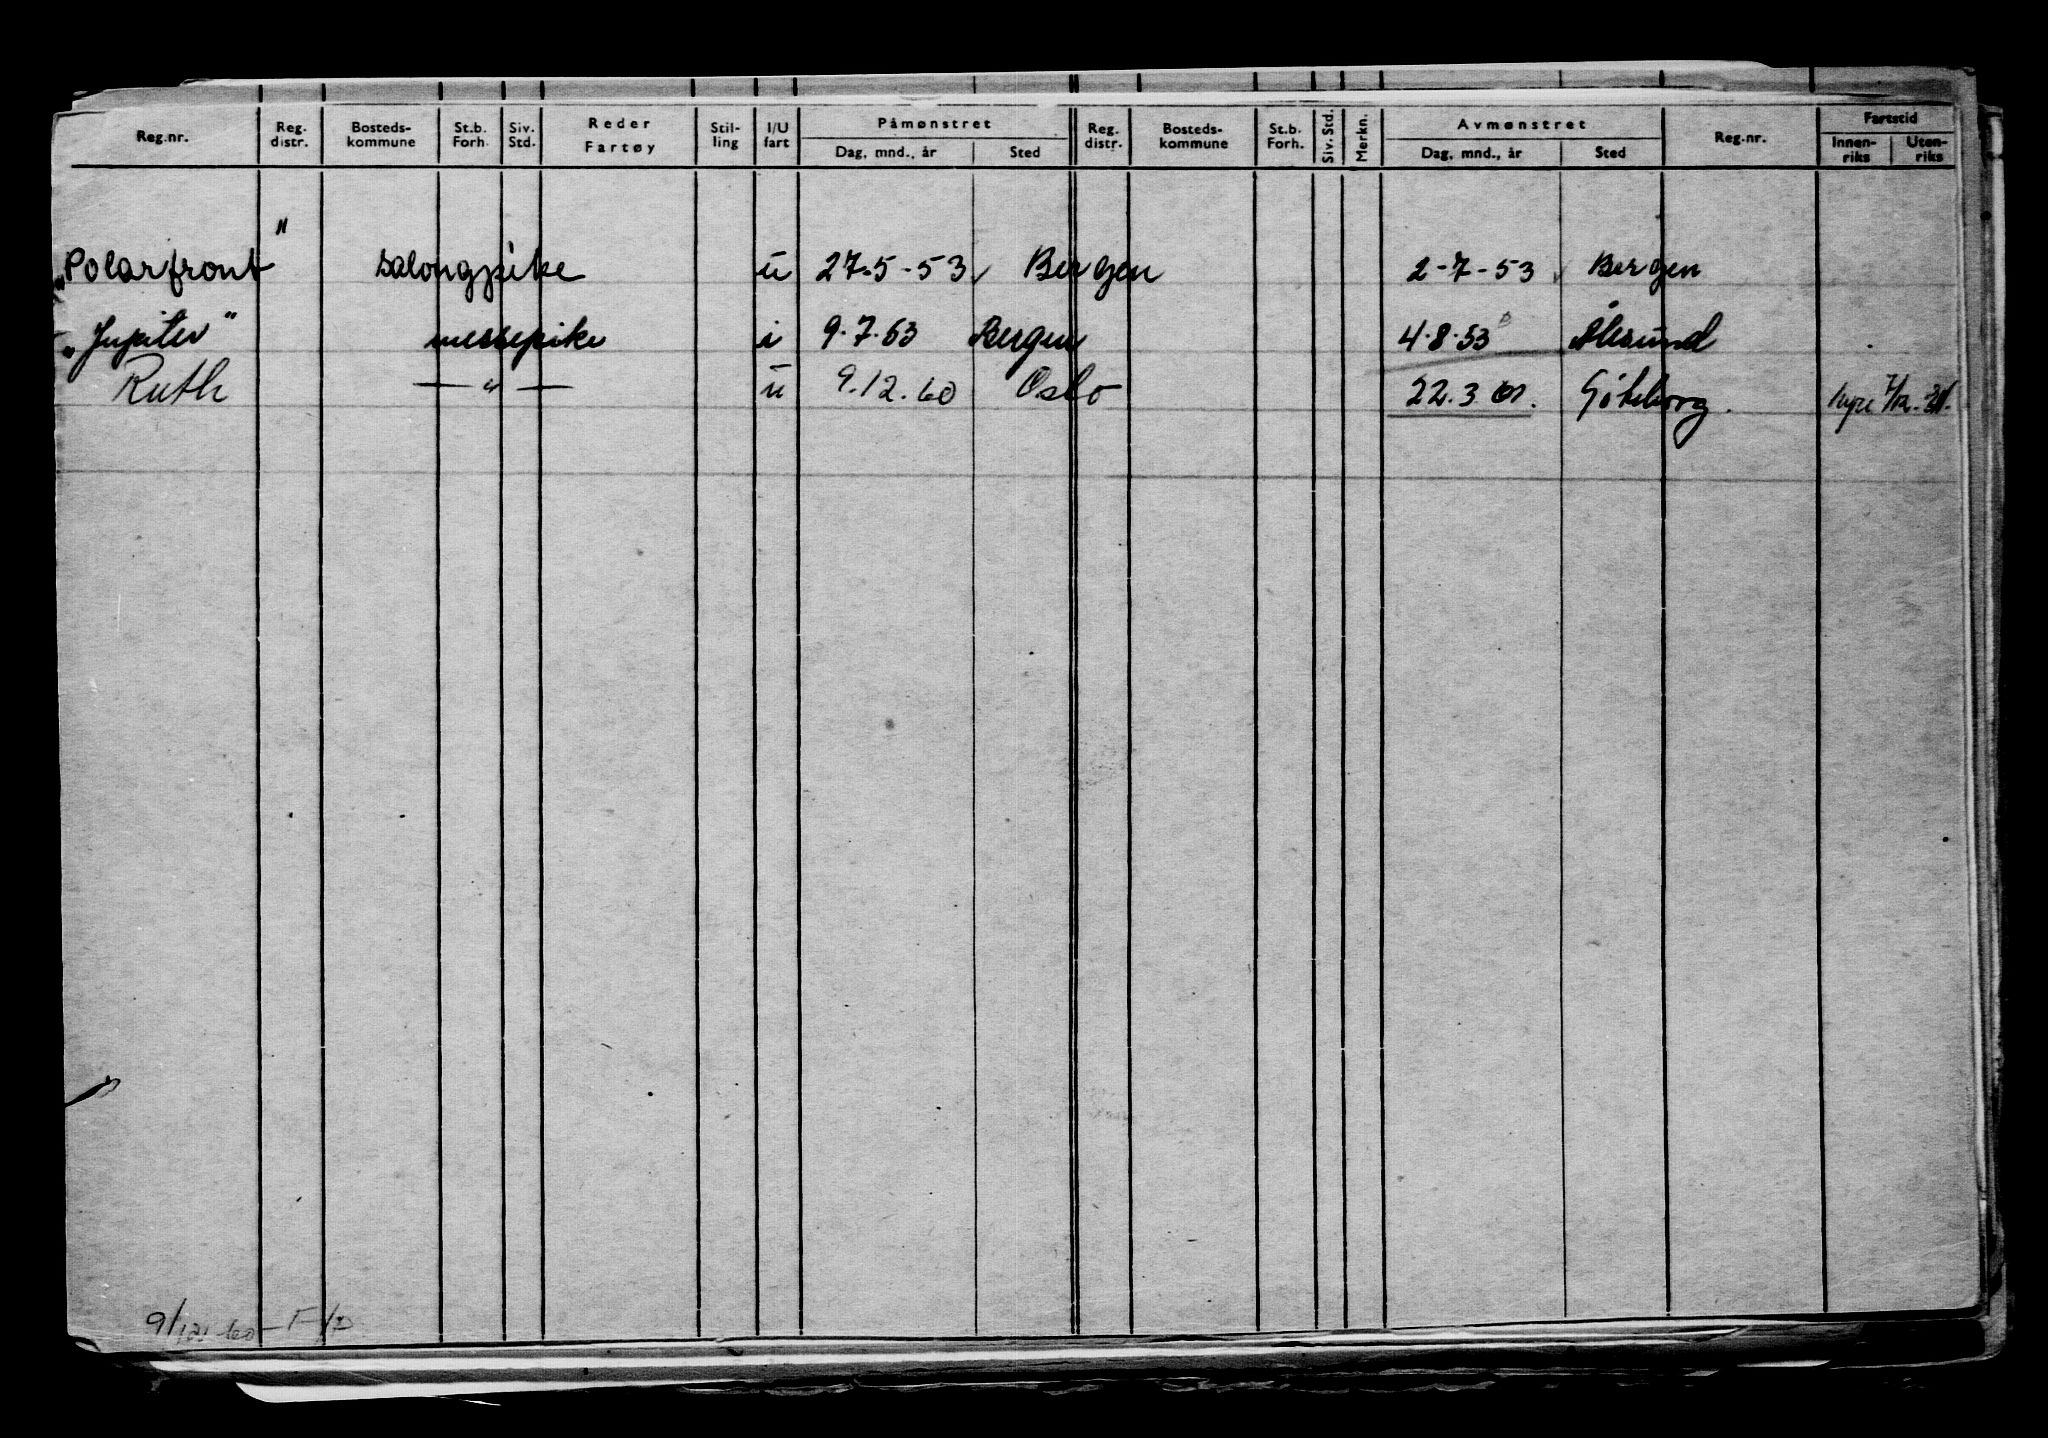 Reg.nr. Reg. distr. Bosteds- kommune St.b. Forh. Siv. Std. Reder Fartøy Stil- ling I/U fart Påmønstret Dag, mnd., år Sted Reg. distr. Bosteds- kommune St.b. Forh. Siv. Std. Merkn. Avmønstret Dag, mnd., år Sted Reg.nr. Fartstid Innen- riks Uten- riks
„Polarfront" salongpike u 27-5-53 Bergen 2-7-53 Bergen
„Jupiter" messepike i 9.7.53 Bergen 4.8.53 Ålesund
Ruth — " — u 9.12.60 Oslo 22.3 61. Göteborg. hyre 7/12-
9/12 60